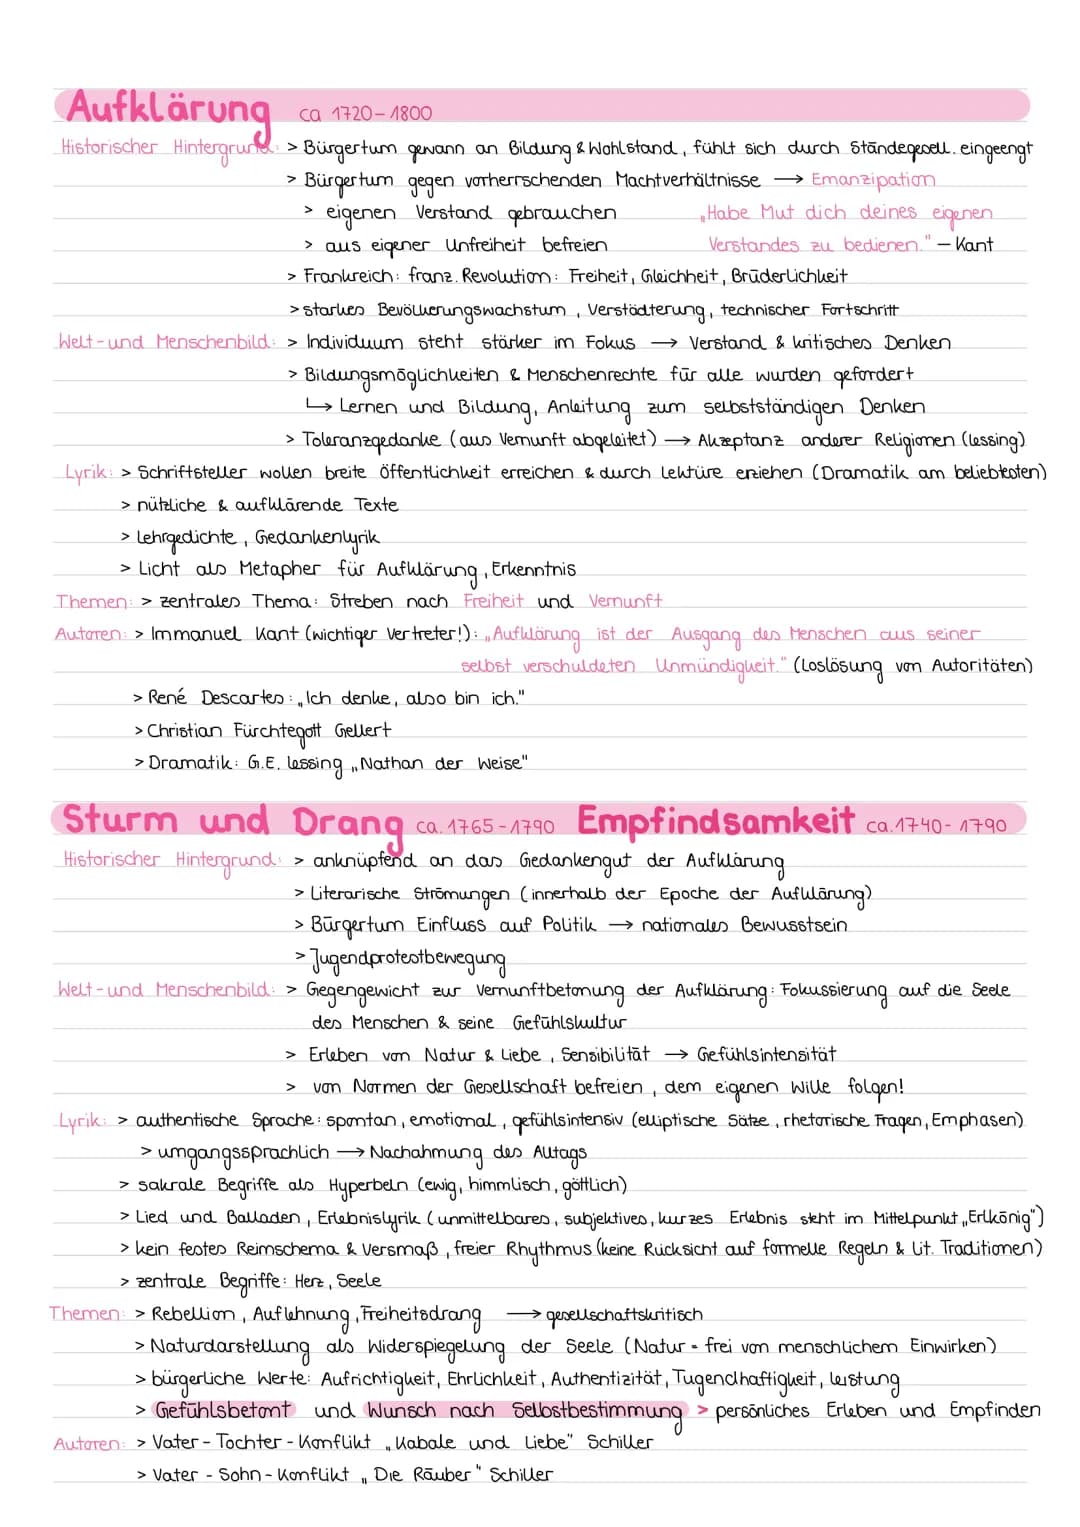 Aufklärung ca 1720-1800
Historischer Hintergrund: > Bürgertum gewann an Bildung & Wohlstand, fühlt sich durch Ständegesell. eingeengt
> Bürgertum gegen vorherrschenden Machtverhältnisse → Emanzipation
> eigenen Verstand gebrauchen „Habe Mut dich deines eigenen
> aus eigener Unfreiheit befreien Verstandes zu bedienen." – Kant
> Frankreich: franz. Revolution: Freiheit, Gleichheit, Brüderlichkeit
> starkes Bevölkerungswachstum, Verstädterung, technischer Fortschritt
Welt- und Menschenbild: > Individuum steht stärker im Fokus → Verstand & kritisches Denken
> Bildungsmöglichkeiten & Menschenrechte für alle wurden gefordert
↳ Lernen und Bildung, Anleitung zum selbstständigen Denken
> Toleranzgedanke (aus Vernunft abgeleitet) → Akzeptanz anderer Religionen (Lessing)
Lyrik: > Schriftsteller wollen breite Öffentlichkeit erreichen & durch Lektüre erziehen (Dramatik am beliebtesten)
> nützliche & aufklärende Texte
> Lehrgedichte, Gedankenlyrik
> Licht als Metapher für Aufklärung, Erkenntnis
Themen: > zentrales Thema: Streben nach Freiheit und Vernunft
Autoren: > Immanuel Kant (wichtiger Vertreter!): „Aufklärung ist der Ausgang des Menschen aus seiner
selbst verschuldeten Unmündigkeit." (Loslösung von Autoritäten)
> René Descartes: „Ich denke, also bin ich."
> Christian Fürchtegott Gellert
> Dramatik: G.E. Lessing „Nathan der Weise"
Sturm und Drang ca. 1765-1790 Empfindsamkeit ca. 1740-1790
Historischer Hintergrund: > anknüpfend an das Gedankengut der Aufklärung
> Literarische Strömungen (innerhalb der Epoche der Aufklärung)
> Bürgertum Einfluss auf Politik → nationales Bewusstsein
> Jugendprotestbewegung
Welt- und Menschenbild: > Gegengewicht zur Vernunftbetonung der Aufklärung: Fokussierung auf die Seele
des Menschen & seine Gefühlskultur
> Erleben von Natur & Liebe, Sensibilität → Gefühlsintensität
> von Normen der Gesellschaft befreien, dem eigenen Wille folgen!
Lyrik: > authentische Sprache: spontan, emotional, gefühlsintensiv (elliptische Sätze, rhetorische Fragen, Emphasen)
> umgangssprachlich → Nachahmung des Alltags
> sakrale Begriffe als Hyperbeln (ewig, himmlisch, göttlich)
> Lied und Balladen, Erlebnislyrik (unmittelbares, subjektives, kurzes Erlebnis steht im Mittelpunkt „Erlkönig")
> kein festes Reimschema & Versmaß, freier Rhythmus (keine Rücksicht auf formelle Regeln & Lit. Traditionen)
> zentrale Begriffe: Herz, Seele
Themen: > Rebellion, Auflehnung, Freiheitsdrang → gesellschaftskritisch
> Naturdarstellung als Widerspiegelung der Seele (Natur = frei von menschlichem Einwirken)
> bürgerliche Werte: Aufrichtigkeit, Ehrlichkeit, Authentizität, Tugendhaftigkeit, Leistung
> Gefühlsbetont und Wunsch nach Selbstbestimmung > persönliches Erleben und Empfinden
Autoren: > Vater-Tochter-Konflikt „Kabale und Liebe" Schiller
> Vater-Sohn-Konflikt „Die Räuber" Schiller